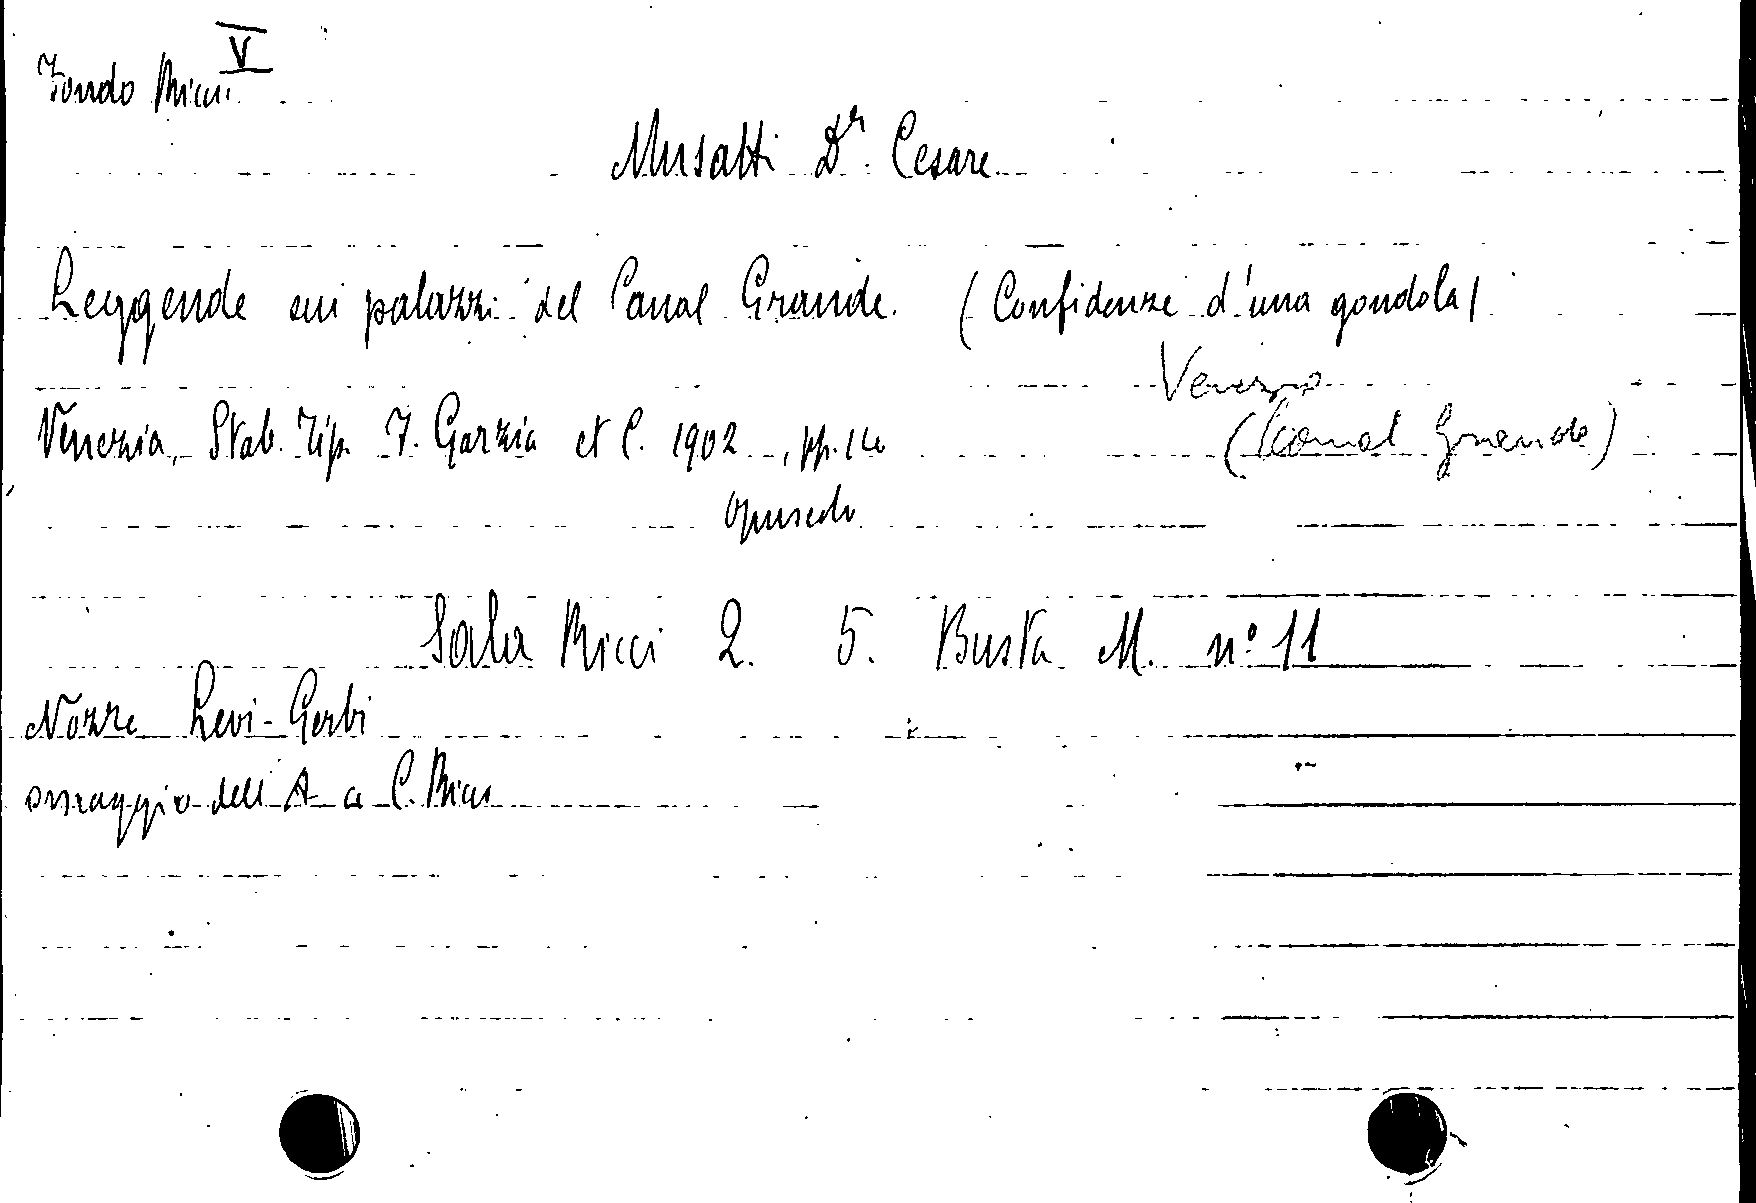 V
Fondo Ricci
Musatti Dr. Cesare
Leggende sui palazzi del Canal Grande. (Confidenze d'una gondola)
Venezia
Venezia, Stab. Tip. F. Garzia et C. 1902, pp. 14
(Canal Grande)
opuscolo
Sala Ricci 2. 5. Busta M. n° 11
Nozze Levi-Gerbi
omaggio dell'A. a C. Ricci